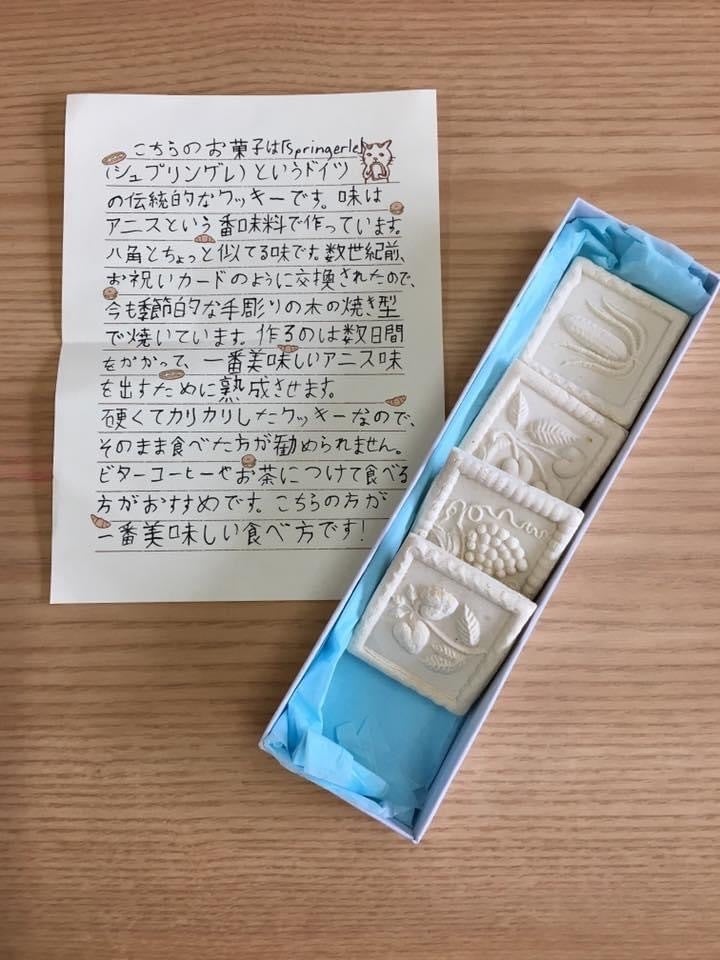 こちらのお菓子は「Springerle」
(シュプリングレ)というドイツ
の伝統的なクッキーです。味は
アニスという番味料で作っています。
八角とちょっと似てる味です。数世紀前、
お祝いカードのように交換されたので、
今も季節的な手彫りの木の焼き型
で焼いています。作るのは数日間
をかかって、一番美味しいアニス味
を出すために熟成させます。
硬くてカリカリしたクッキーなので、
そのまま食べた方が勧められません。
ビターコーヒーやお茶につけて食べる
方がおすすめです。こちらの方が
一番美味しい食べ方です!